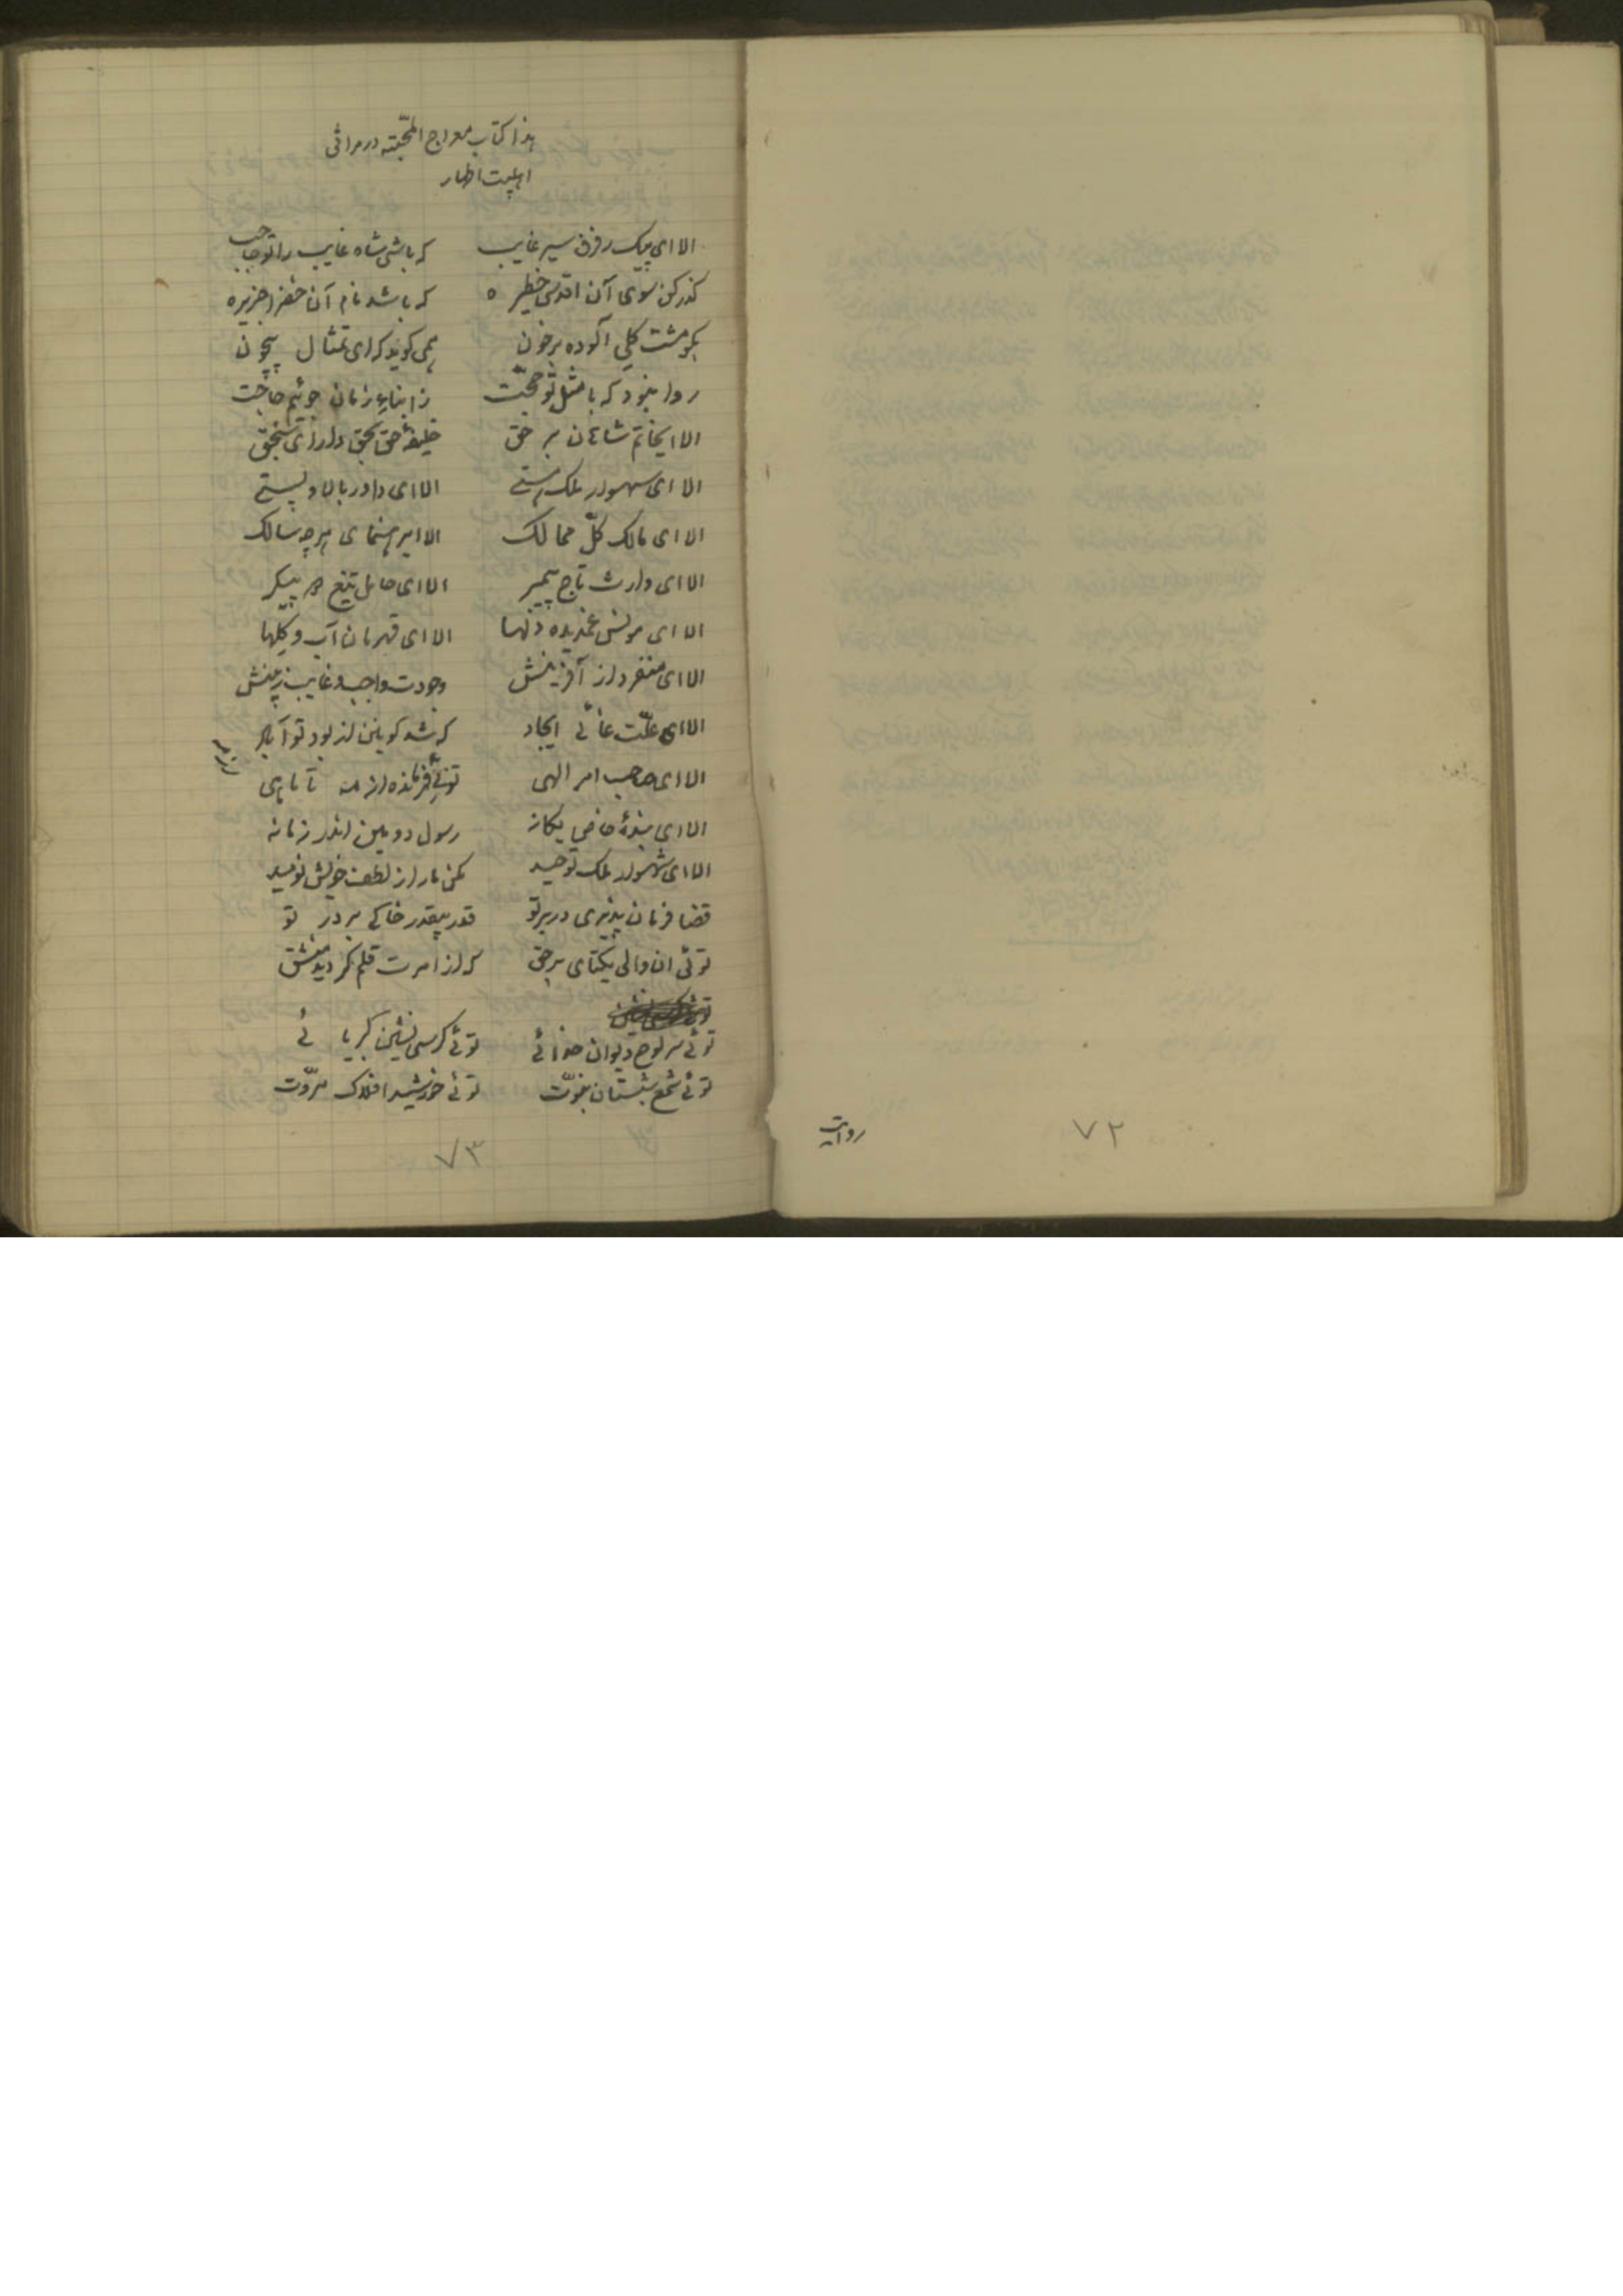 روایت
۷۲
هذا کتاب معراج المحبّته در مراثی
اهلبیت اطهار
الا ای پیک رفرف سیر غایب که باشی شاه غایب را تو حاجب
گذر کن سوی آن اقدس خطیره که باشد نام آن خضرا جزیره
بگو مشت گلی آلوده بر خون همی گوید که ای تمثال بیچون
روا نبود که با مثل تو حجّت ز ابناء زمان جوئیم حاجت
الا ایخاتم شاهان بر حق خلیفهٔ حق بحق دارای سنجق
الا ای شهسوار ملک هستی الا ای داور بالا و پستی
الا ای مالک کلّ ممالک الا ایرهنمای هرچه سالک
الا ای وارث تاج پیمبر الا ای حامل تیغ دو پیکر
الا ای مونس غمدیده دلها الا ای قهرمان آب و گلها
الا ای منفرد از آفرینش وجودت واجب و غایب ز بینش
الا ای علّت غائی ایجاد که شد کونین از بود تو آباد
الا ای صاحب امر الهی توئی فرمانده از مه تا بماهی
الا ای بندهٔ خاص یگانه رسول دومین اندر زمانه
الا ای شهسوار ملک توحید مکن ما را ز لطف خویش نومید
قضا فرمان پذیری در بر تو قدر بیقدر خاکی بر در تو
توئی آن والی یکتای بر حق که از امرت قلم گردید منشق
توئی سر لوح دیوان خدائی توئی کرسی نشین کبریائی
توئی شمع شبستان نبوّت توئی خورشید افلاک مروّت
۷۳